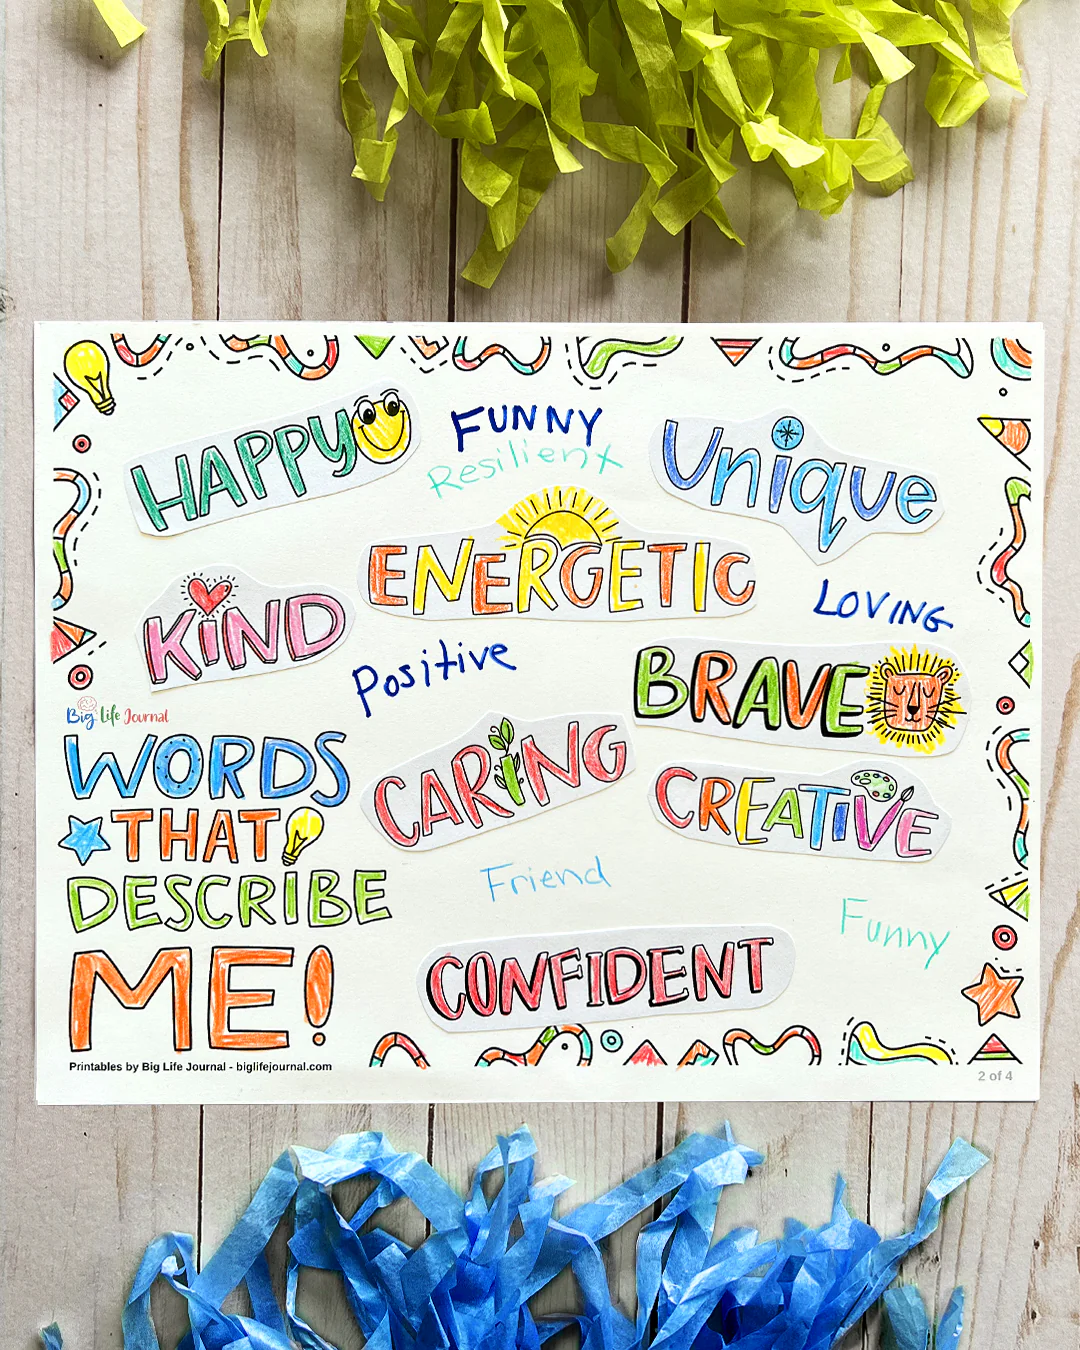 HAPPY
FUNNY
Resilient
Unique
ENERGETIC
KIND
LOVING
Positive
BRAVE
Big Life Journal
WORDS
THAT
DESCRIBE
ME!
CARING
CREATIVE
Friend
Funny
CONFIDENT
Printables by Big Life Journal - biglifejournal.com
2 of 4